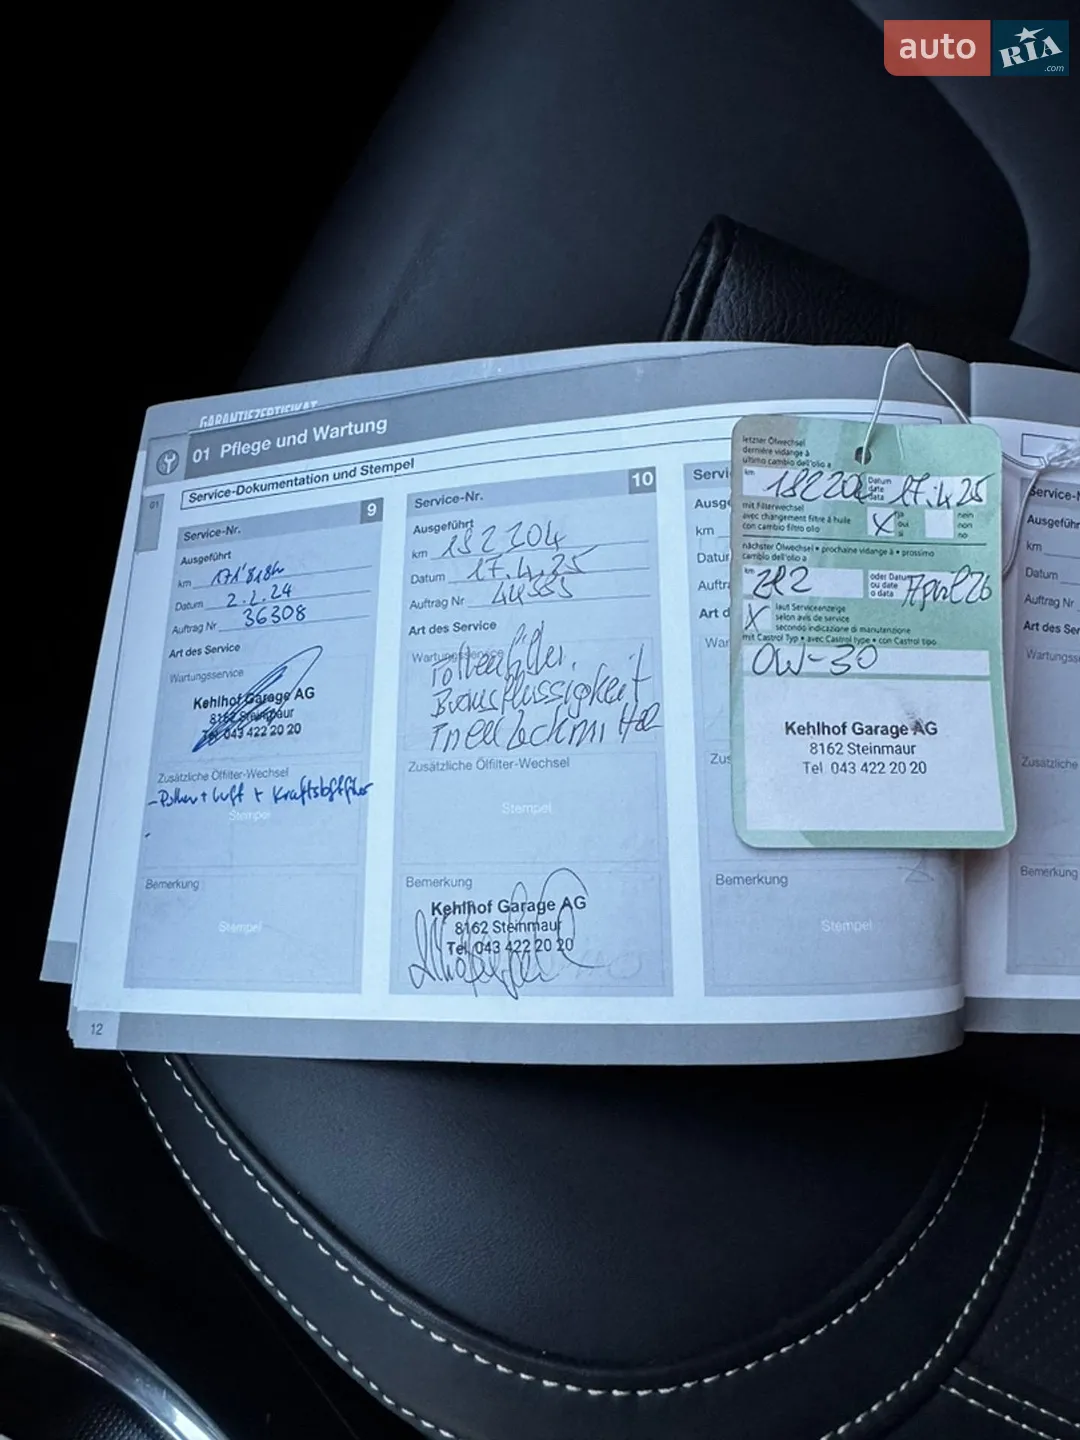 auto
RIA
.com
GARANTIEZERTIFIKAT
01 Pflege und Wartung
01
Service-Dokumentation und Stempel
9
Service-Nr.
Ausgeführt
km 171'818h
Datum 2.2.24
Auftrag Nr 36308
Art des Service
Wartungsservice
Kehlhof Garage AG
8162 Steinmaur
Tel. 043 422 20 20
Zusätzliche Ölfilter-Wechsel
- Pollen + Luft + Kraftstofffilter
Stempel
-
Bemerkung
Stempel
12
10
Service-Nr.
Ausgeführt
km 192 204
Datum 17.4.25
Auftrag Nr
Art des Service
Wartungsservice
Pollenfilter,
Bremsflüssigkeit
Zusätzliche Ölfilter-Wechsel
Stempel
Bemerkung
Kehlhof Garage AG
8162 Steinmaur
Tel. 043 422 20 20
Servi
Ausg
km
Datur
Auftra
Art d
War
Zus
Bemerkung
Stempel
letzter Ölwechsel
dernière vidange à
ultimo cambio dell'olio a
km 19220
Datum
date
data
17.4.25
mit Filterwechsel
avec changement filtre à huile
con cambio filtro olio
X
ja
oui
si
nein
non
no
nächster Ölwechsel • prochaine vidange à • prossimo
cambio dell'olio a
km 212
oder Datum
ou date
o data
April 26
X
laut Serviceanzeige
selon avis de service
secondo indicazione di manutenzione
mit Castrol Typ • avec Castrol type • con Castrol tipo
0W-30
Kehlhof Garage AG
8162 Steinmaur
Tel. 043 422 20 20
Service-N
Ausgeführ
km
Datum
Auftrag Nr
Art der Ser
Wartungss
Zusätzliche
Bemerkung